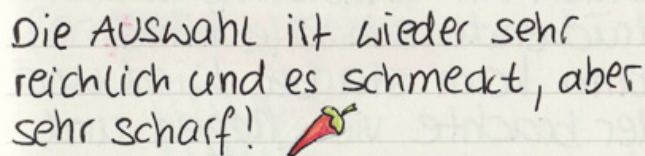 Die Auswahl ist wieder sehr
reichlich und es schmeckt, aber
sehr scharf!